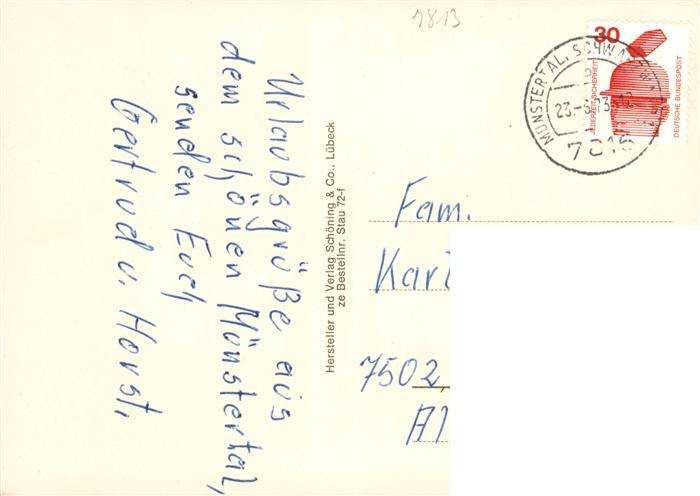 7813
Urlaubsgrüße aus
dem schönen Münstertal,
senden Euch
Gertrud u. Horst.
Hersteller und Verlag Schöning & Co., Lübeck
ze Bestellnr. Stau 72-f
30
JEDERZEIT SICHERHEIT
DEUTSCHE BUNDESPOST
MÜNSTERTAL, SCHWARZW
23.
7816
Fam.
Karl
7502
Al